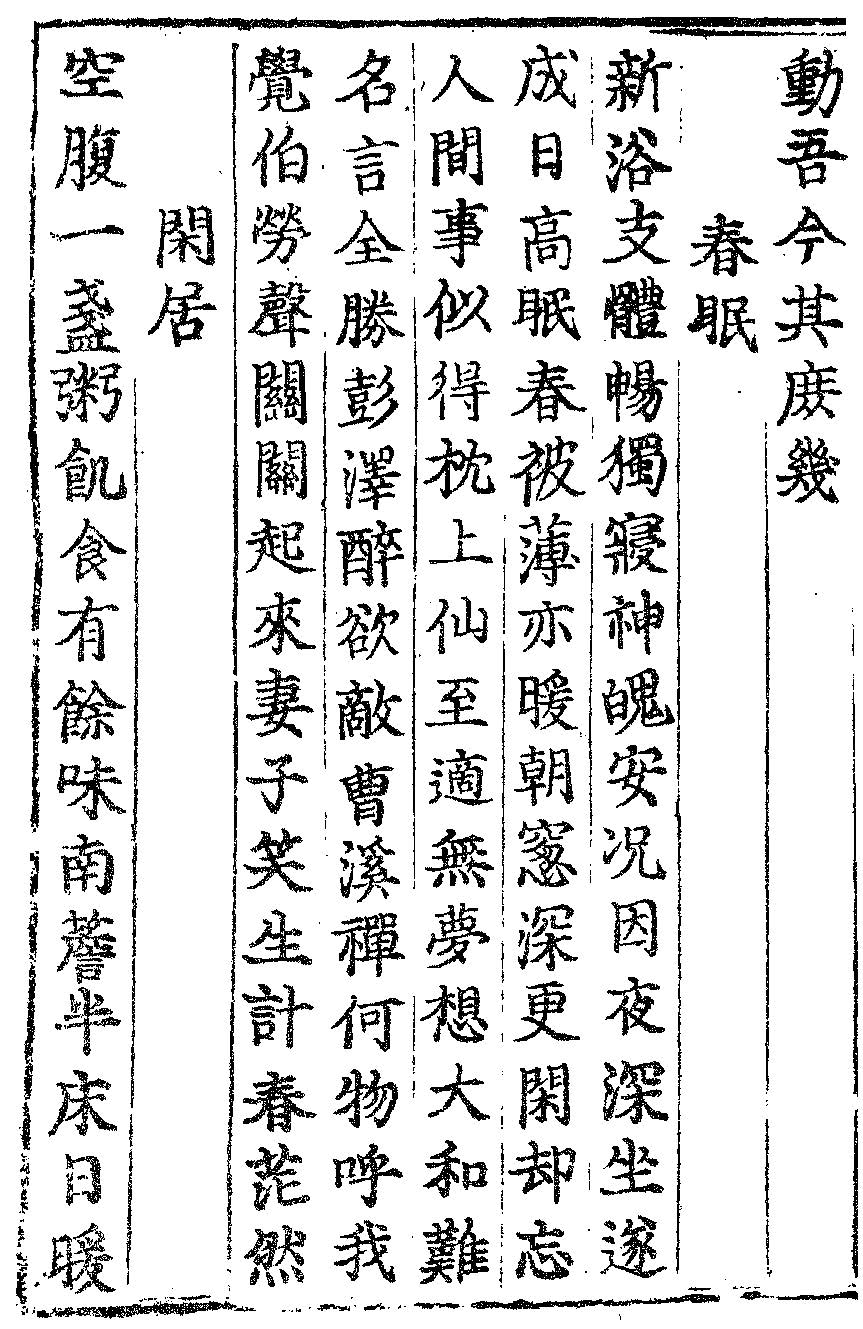 動吾今其庶幾
春眠
新浴支體暢獨寢神魄安况因夜深坐遂
成日高眠春被薄亦暖朝窻深更閑却忘
人間事似得枕上仙至適無夢想大和難
名言全勝彭澤醉欲敵曹溪禪何物呼我
覺伯勞聲關關起來妻子笑生計春茫然
閑居
空腹一盞粥飢食有餘味南簷半床日暖